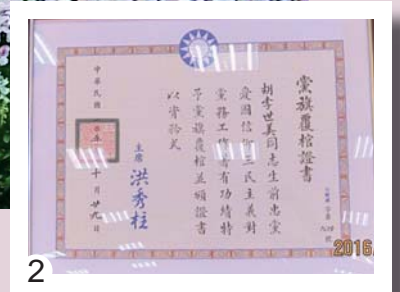 黨旗覆棺證書
胡李世美同志生前忠黨
愛國信仰三民主義對
黨務工作著有功績特
予黨旗覆棺並頒證書
以資矜式
主席 洪秀柱
中華民國
十月廿九日
2016
2